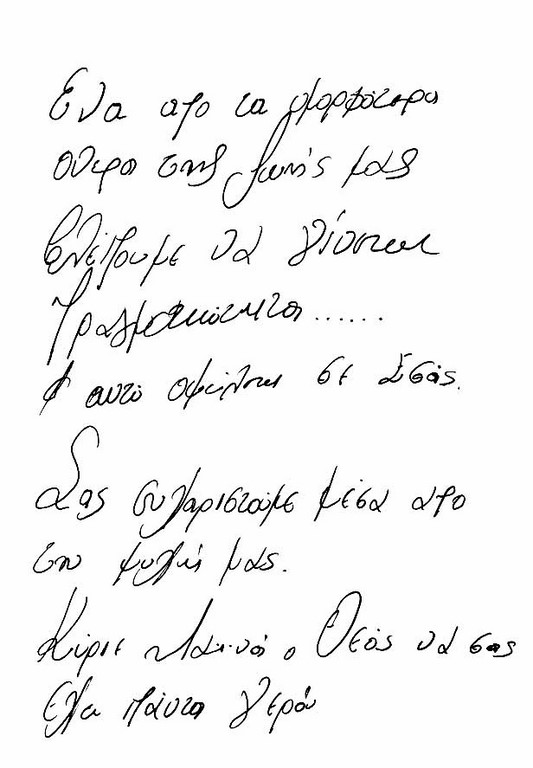 Ένα απο τα ομορφότερα
όνειρα της ζωής μας
βλέπουμε να γίνεται
Πραγματικότητα ......
αυτό οφείλεται σε Εσάς.
Σας ευχαριστούμε μέσα απο
την ψυχή μας.
Κύριε ο Θεός να σας
έχει πάντα γερό